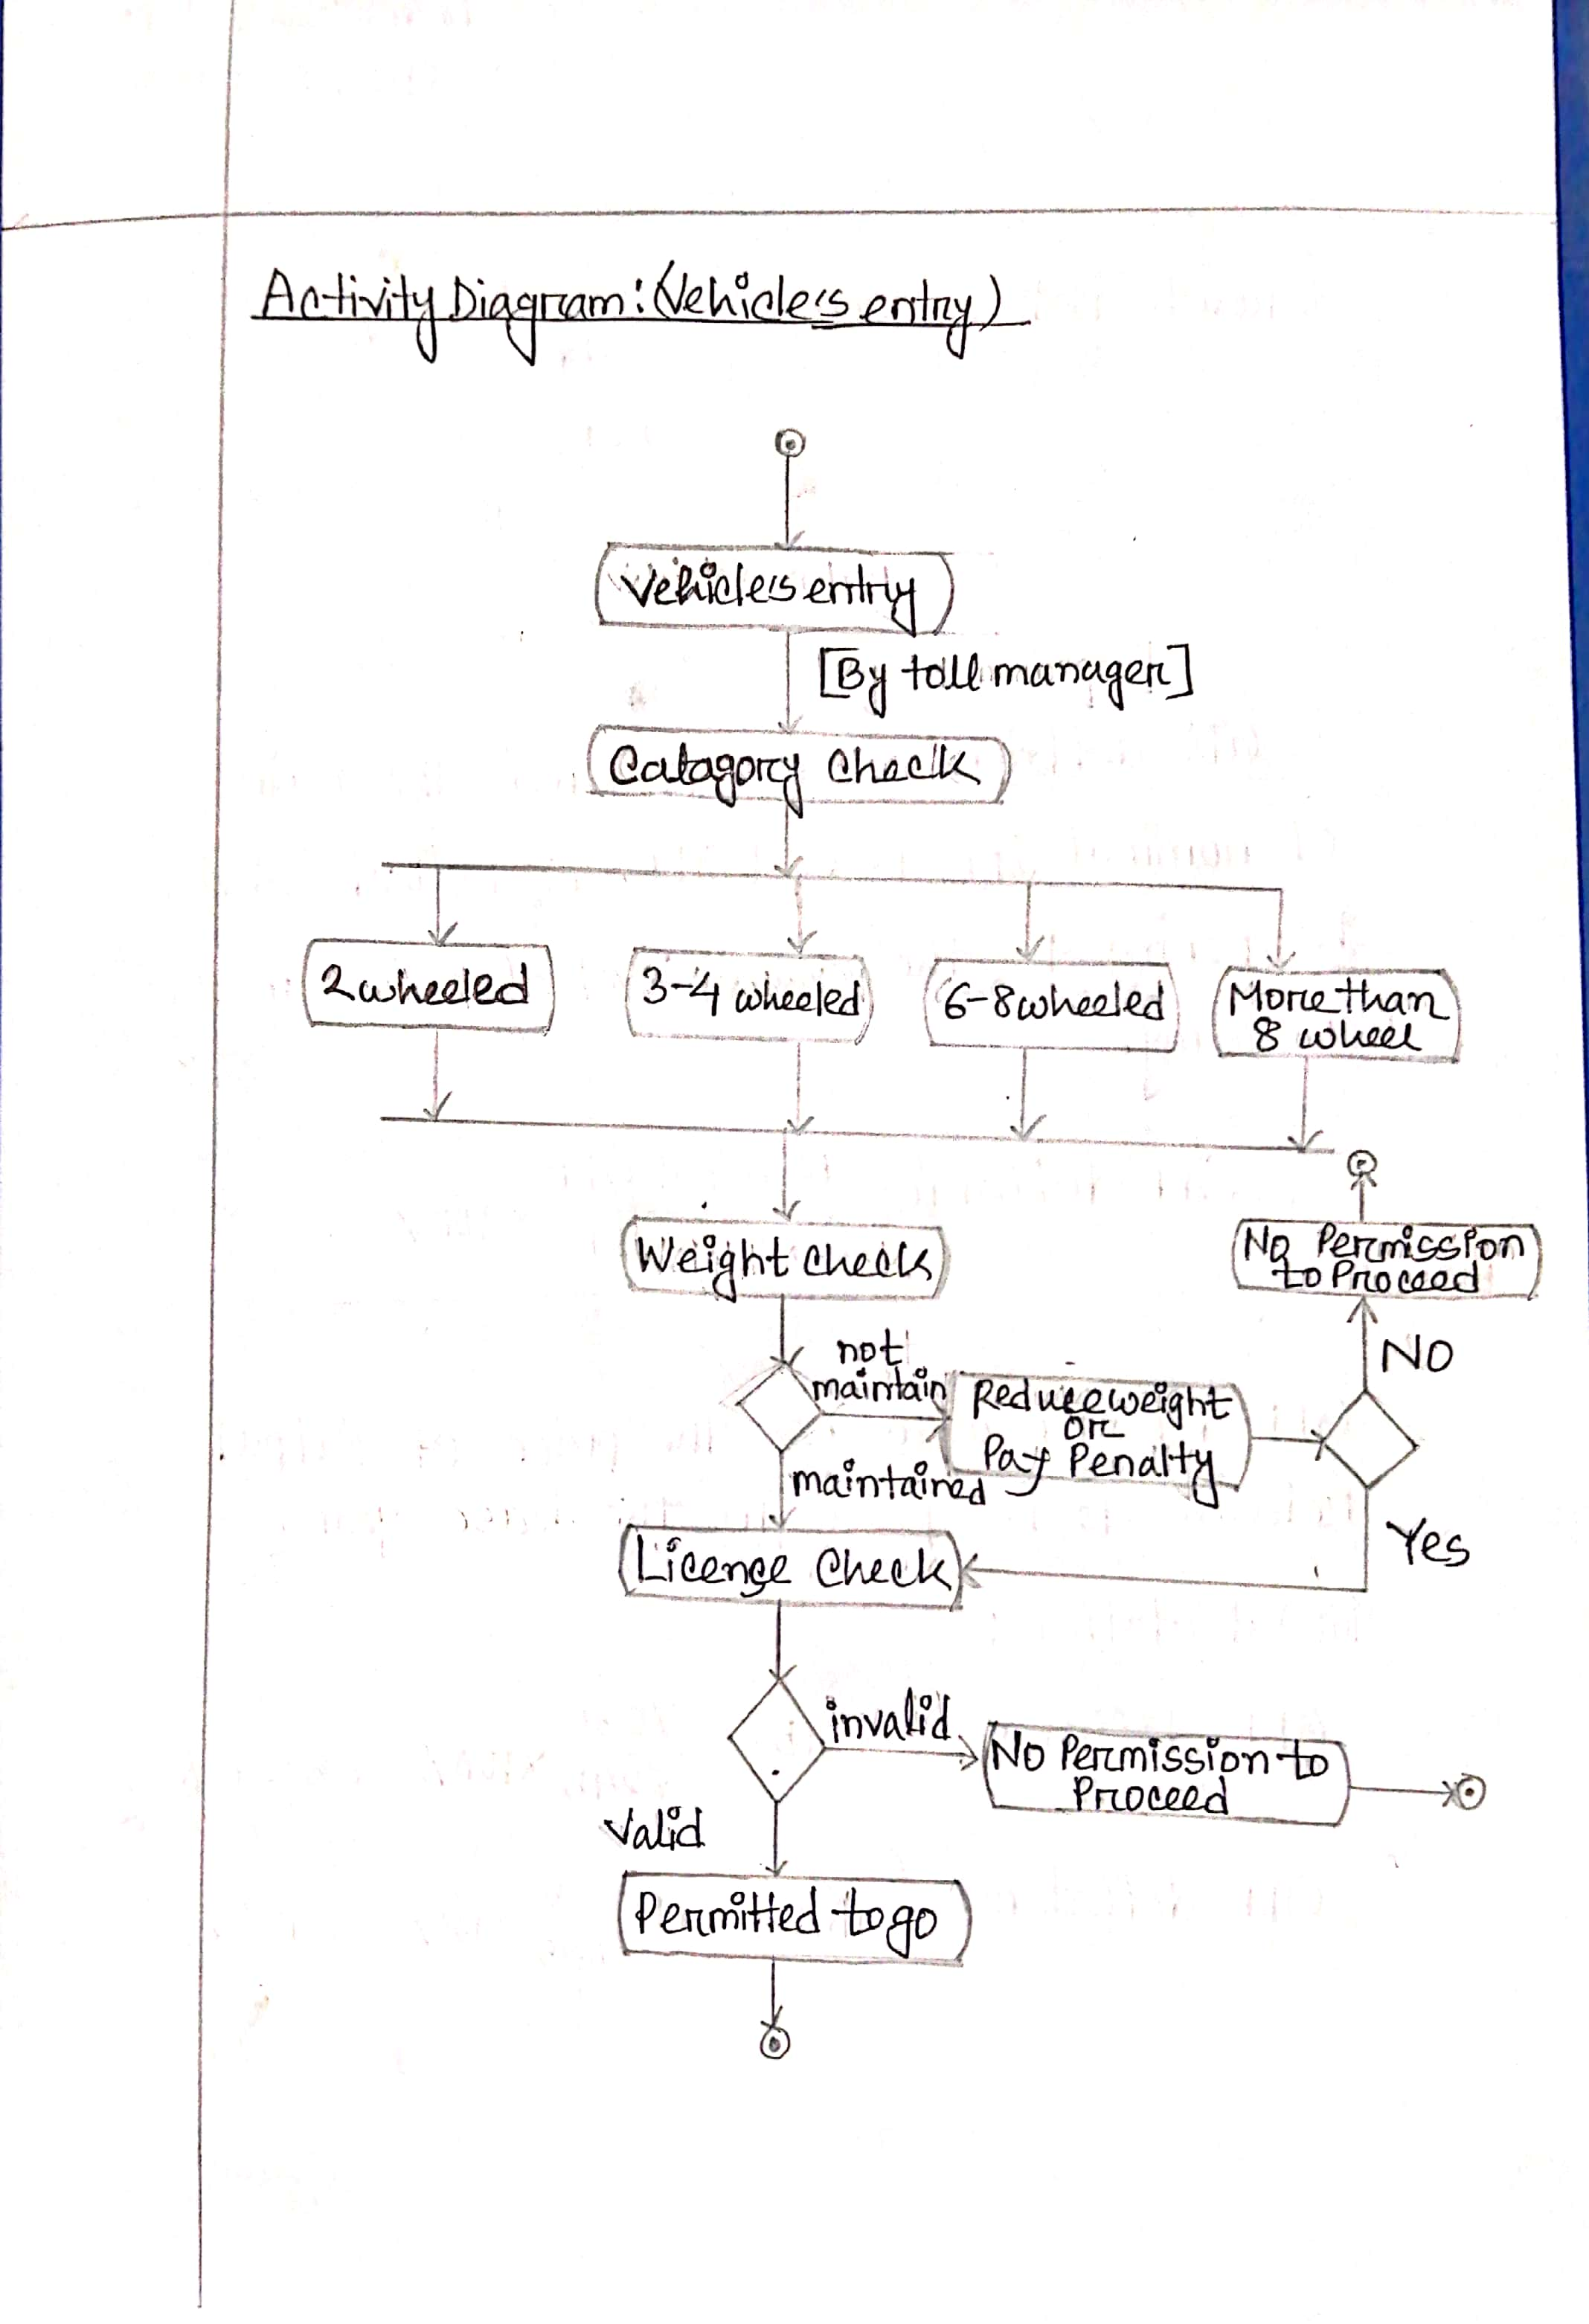 Activity Diagram: (Vehicle's entry)
Vehicle's entry
[By toll manager]
Catagory Check
2 wheeled
3-4 wheeled
6-8 wheeled
More than
8 wheel
Weight check
No Permission
to Proceed
NO
not
maintain
Reduce weight
or
Pay Penalty
maintained
Yes
License Check
invalid
No Permission to
Proceed
Valid
Permitted to go